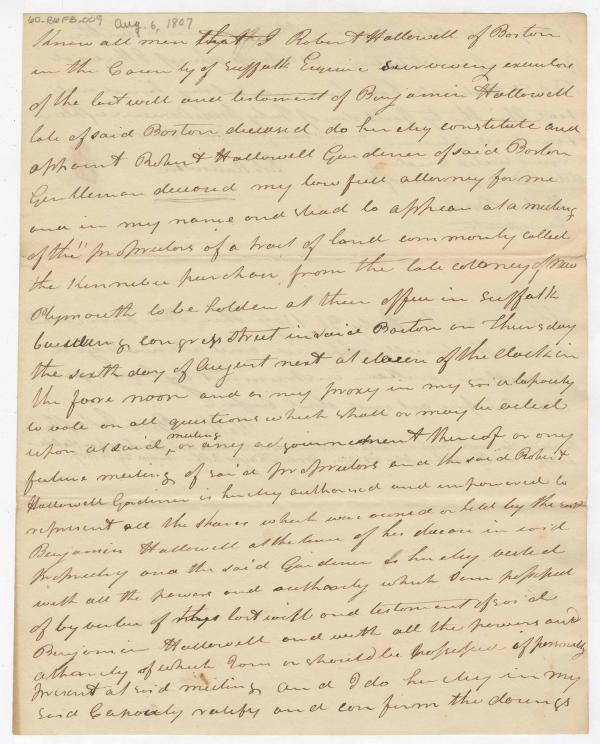 60-BWFB-009 Aug. 6, 1807
Know all men that I Robert Hallowell of Boston
in the County of Suffolk Esquire surviving executor
of the last will and testament of Benjamin Hallowell
late of said Boston deceased do hereby constitute and
appoint Robert Hallowell Gardiner of said Boston
Gentleman my lawfull attorney for me
and in my name and stead to appear at a meeting
of the "proprietors of a tract of land commonly called
the Kennebec purchase from the late colony of New
Plymouth to be holden at their office in Suffolk
buildings congress street in said Boston on Thursday
the sixth day of August next at eleven of the clock in
the fore noon and as my proxy in my said capacity
to vote on all questions which shall or may be acted
upon at said meeting, or any adjournment thereof or any
future meeting of said proprietors and the said Robert
Hallowell Gardiner is hereby authorised and impowered to
represent all the shares which was owned or held by the said
Benjamin Hallowell at the time of his decease in said
propriety and the said Gardiner is hereby vested
with all the powers and authority which I am possessed
of by virtue of last will and testament of said
Benjamin Hallowell and with all the powers and
athority of which I am or should be possessed if personally
present at said meeting and I do hereby in my
said Capacity ratify and confirm the doings